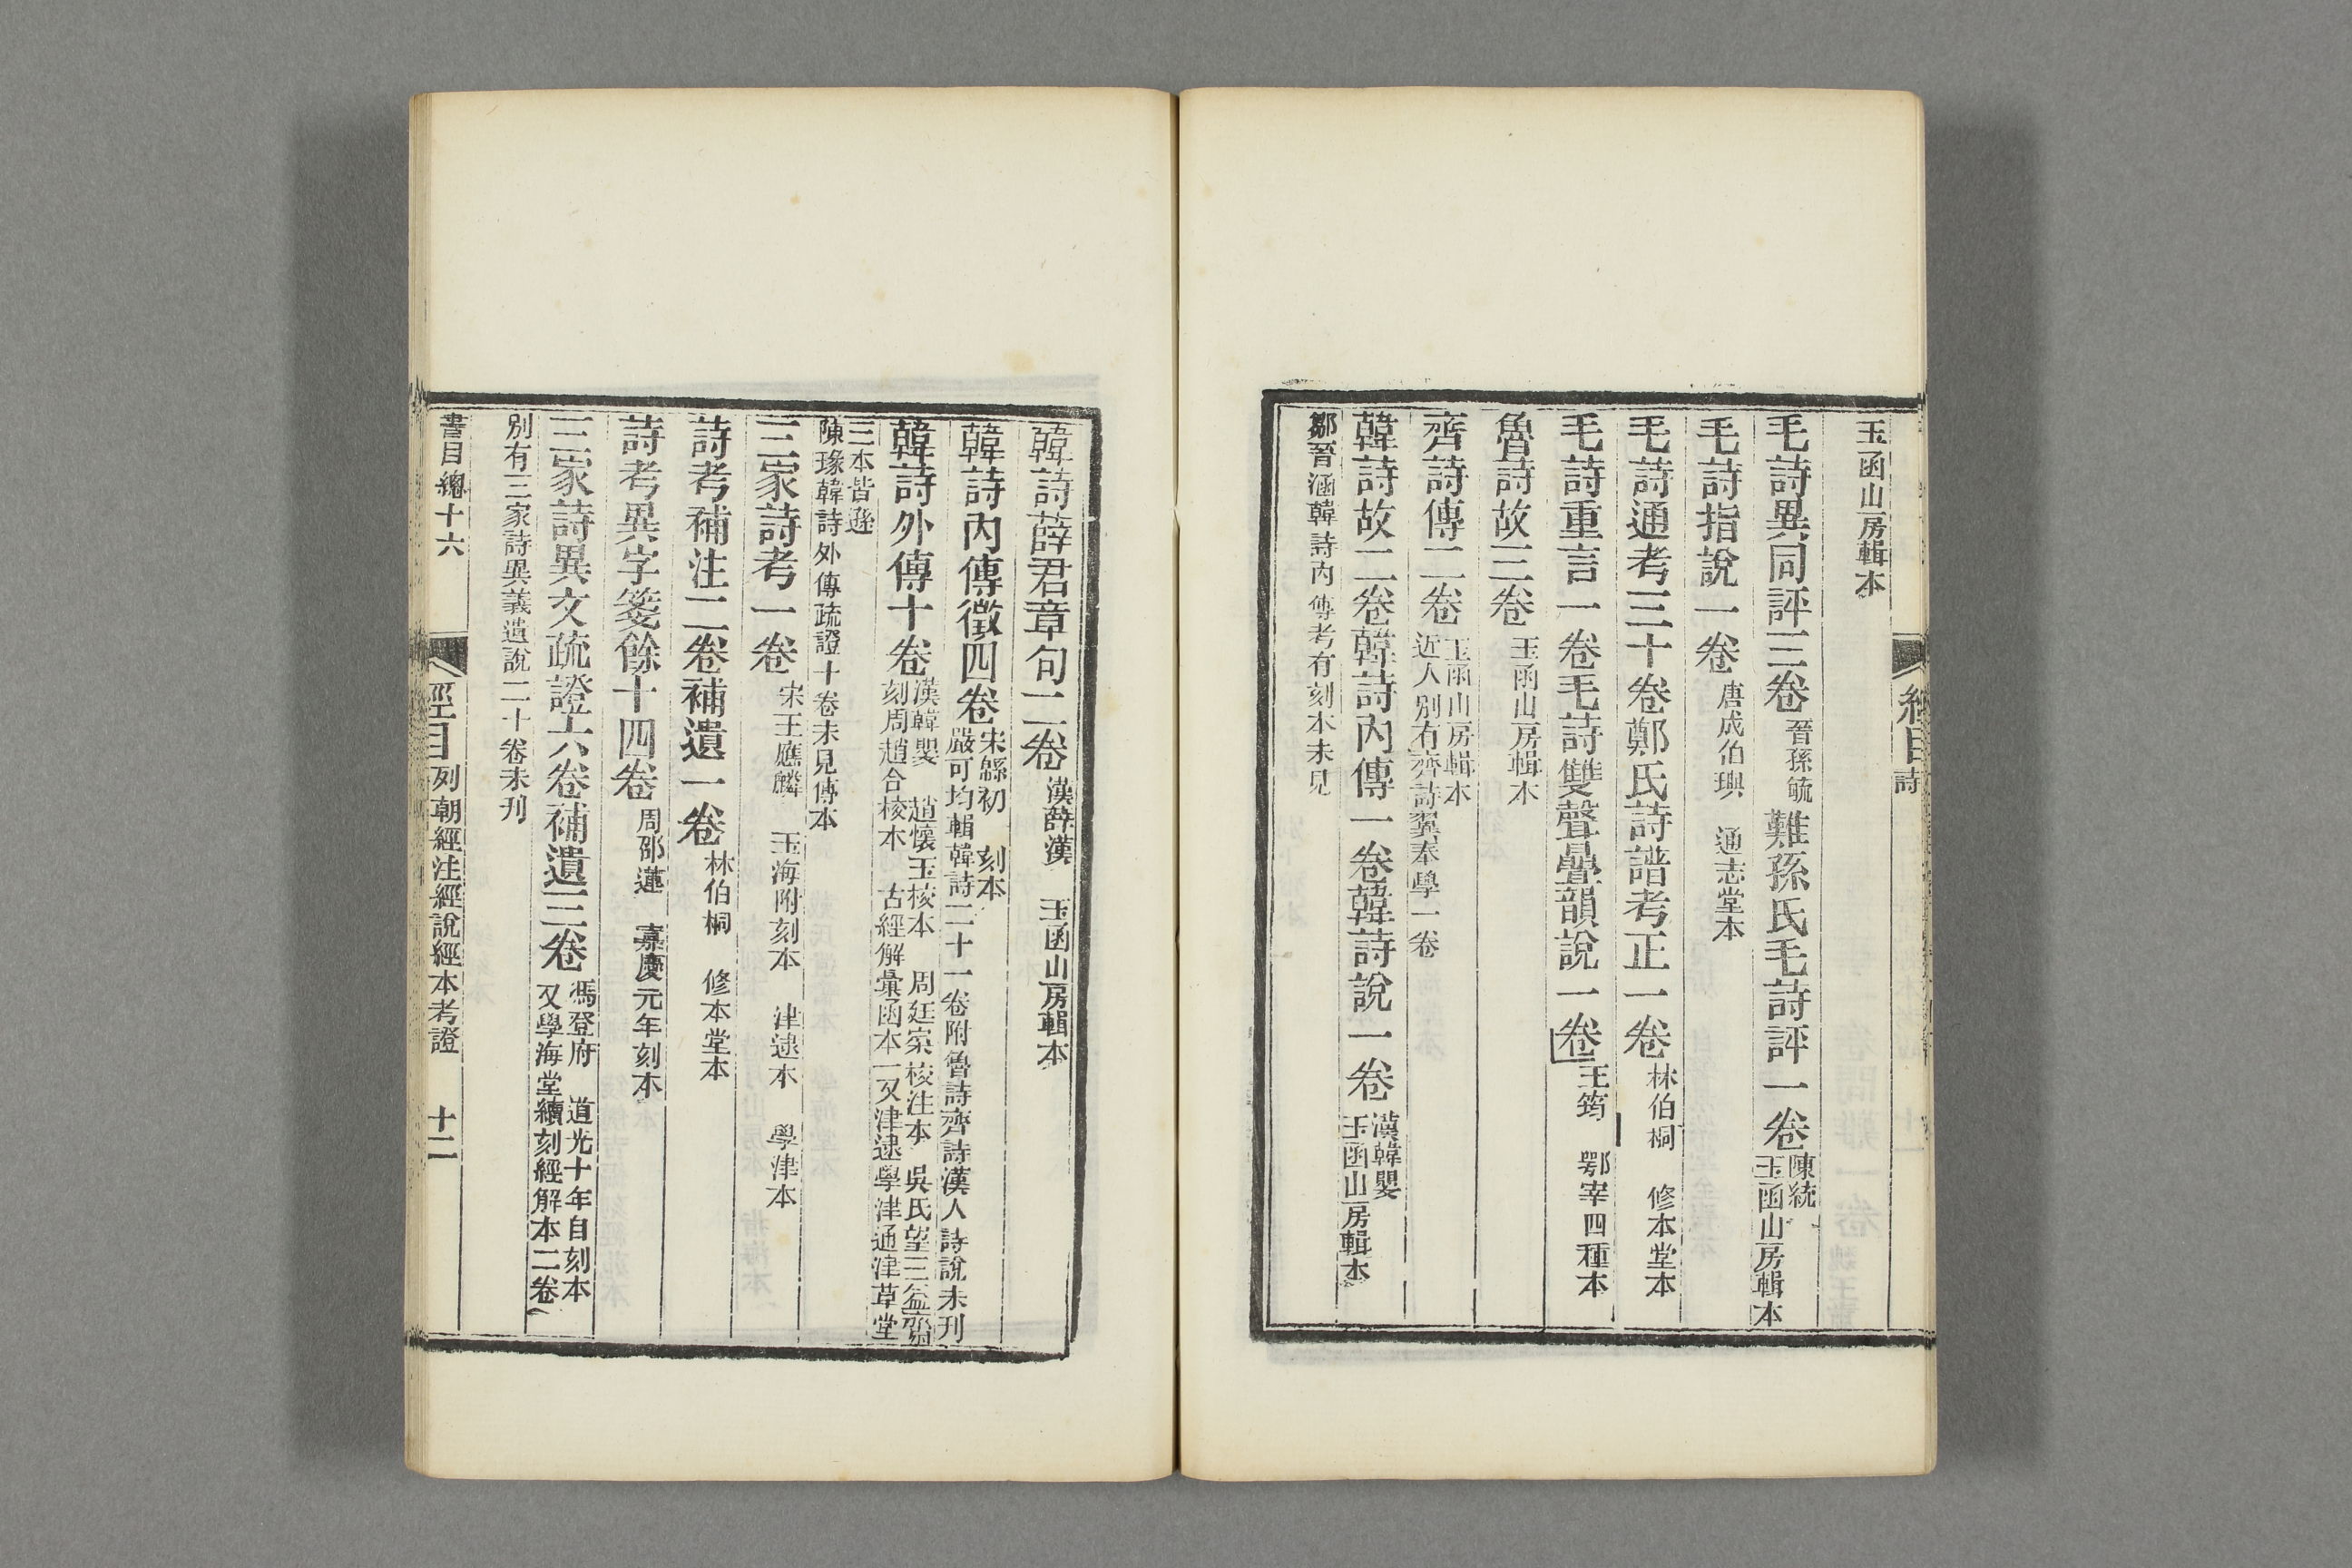 經目
詩
玉函山房輯本
毛詩異同評三卷 晉孫毓 難孫氏毛詩評一卷 陳統
玉函山房輯本
毛詩指說一卷 唐成伯璵 通志堂本
毛詩通考三十卷鄭氏詩譜考正一卷 林伯桐 修本堂本
毛詩重言一卷毛詩雙聲疊韻說一卷 王筠 鄂宰四種本
魯詩故三卷 玉函山房輯本
齊詩傳二卷 玉函山房輯本
近人別有齊詩翼奉學一卷
韓詩故二卷韓詩內傳一卷韓詩說一卷 漢韓嬰
玉函山房輯本
鄒晉涵韓詩內傳考有刻本未見
韓詩薛君章句二卷 漢薛漢 玉函山房輯本
韓詩內傳徵四卷 宋緜初 刻本
嚴可均輯韓詩二十一卷附魯詩齊詩漢人詩說未刊
韓詩外傳十卷 漢韓嬰 趙懷玉校本 周廷寀校注本 吳氏望三益齋
刻周趙合校本 古經解彙函本一又津逮學津通津草堂
三本皆遜
陳瑑韓詩外傳疏證十卷未見傳本
三家詩考一卷 宋王應麟 玉海附刻本 津逮本 學津本
詩考補注二卷補遺一卷 林伯桐 修本堂本
詩考異字箋餘十四卷 周邵蓮 嘉慶元年刻本
三家詩異文疏證六卷補遺三卷 馮登府 道光十年自刻本
又學海堂續刻經解本二卷
別有三家詩異義遺說二十卷未刊
書目總十六
經目
列朝經注經說經本考證
十二